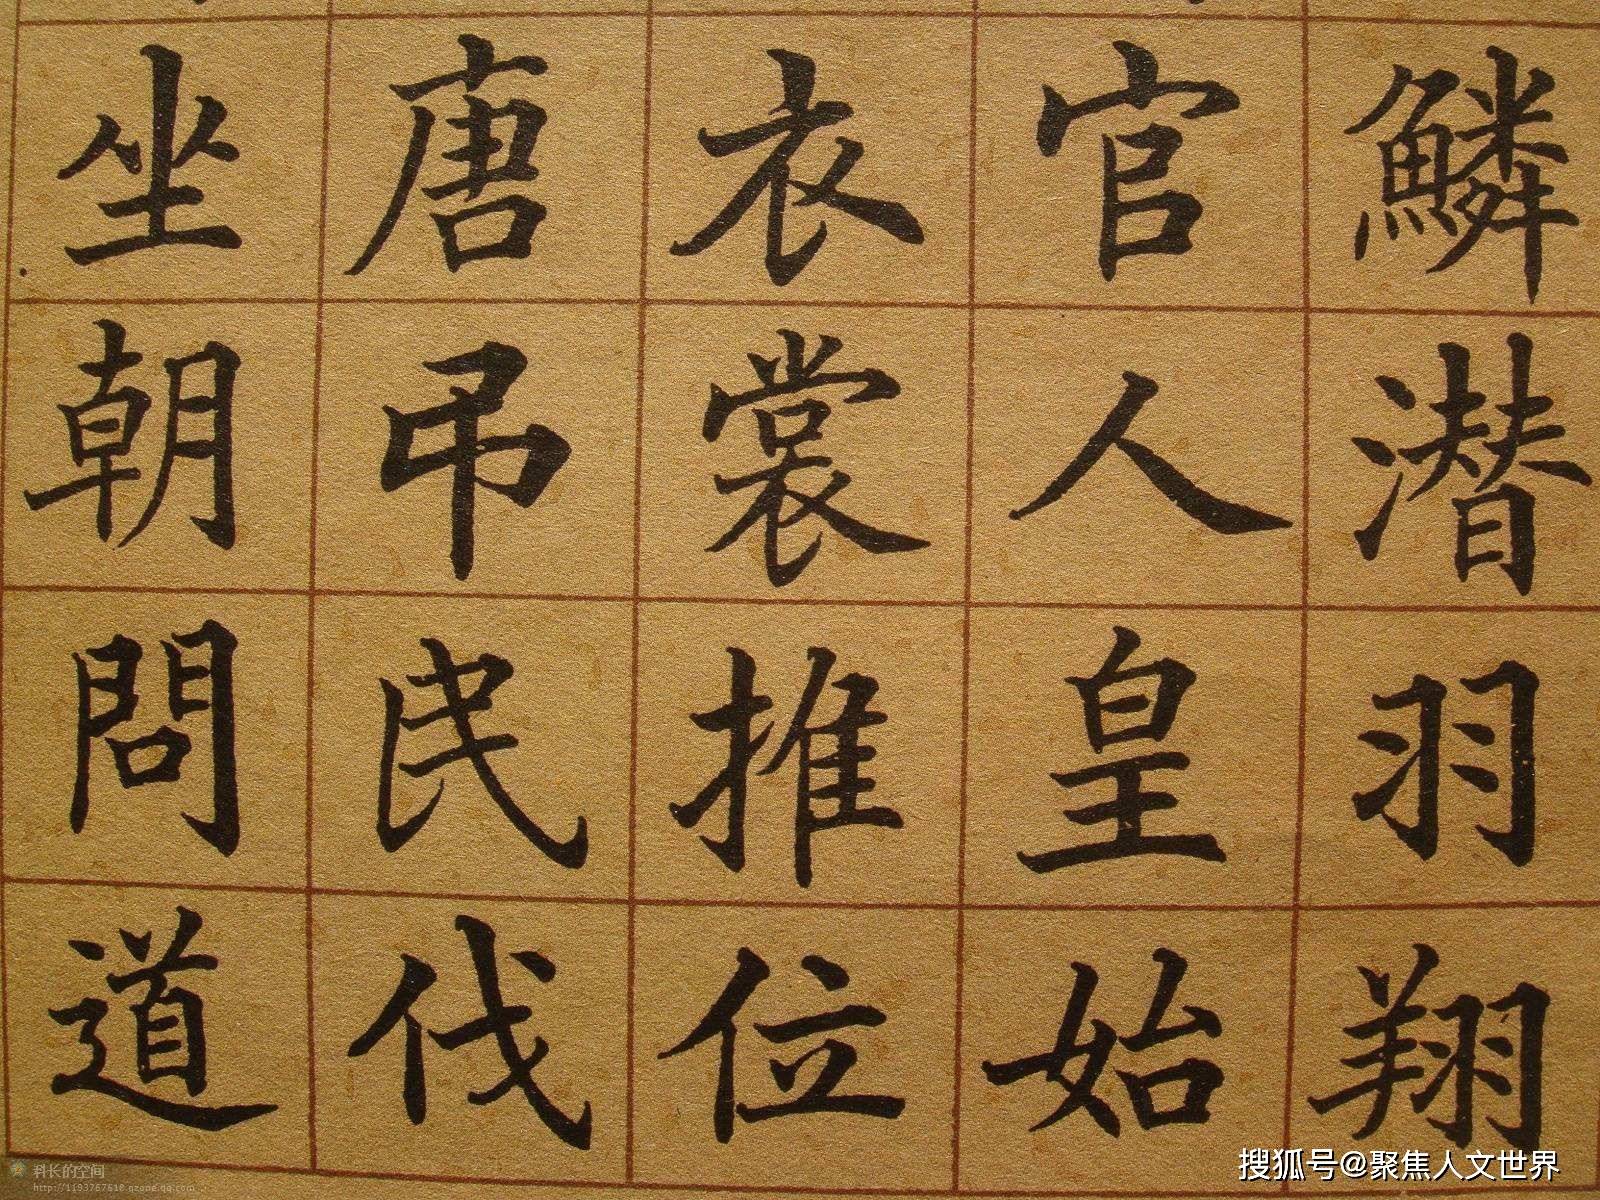 鱗潛羽翔
官人皇始
衣裳推位
唐弔民伐
坐朝問道
科长的空间
http://1193767618.qzone.qq.com
搜狐号@聚焦人文世界